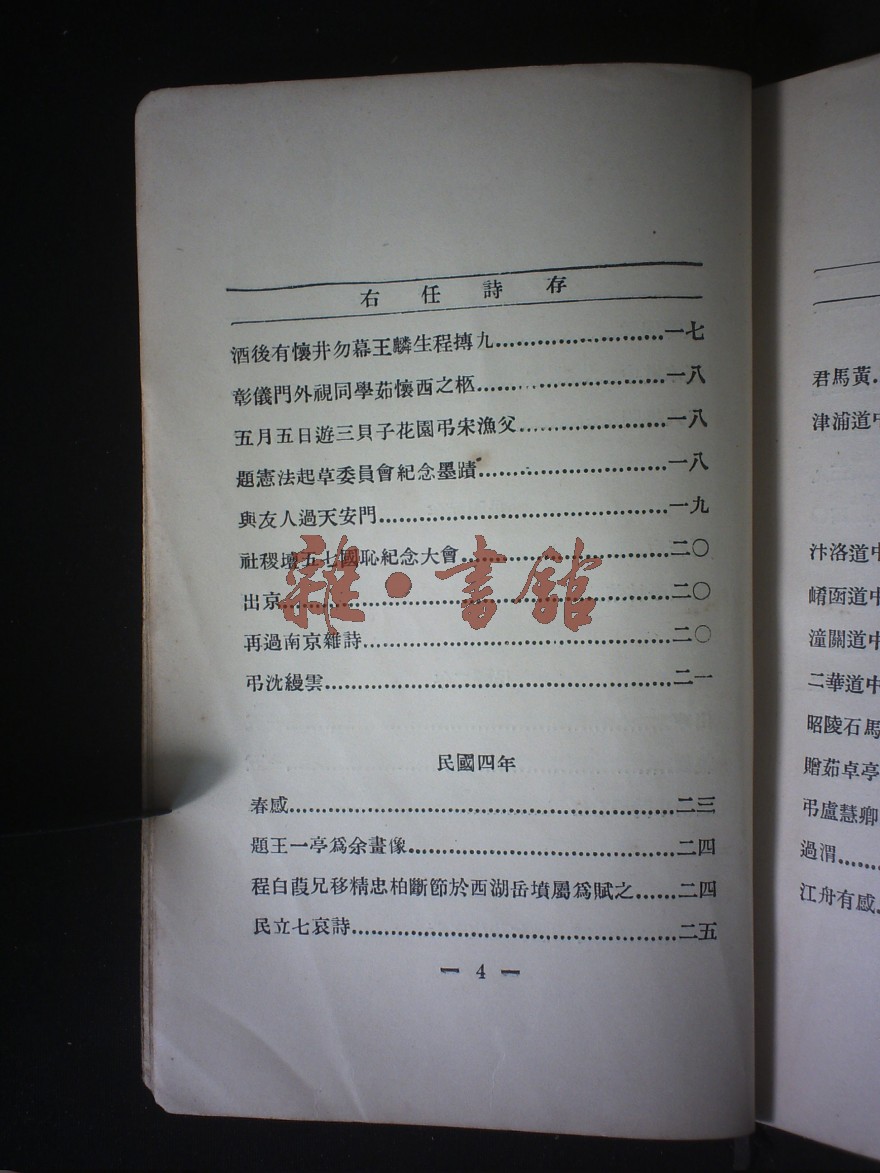 右任詩存
酒後有懷井勿幕王麟生程摶九……………………一七
彰儀門外視同學茹懷西之柩……………………一八
五月五日遊三貝子花園弔宋漁父……………………一八
題憲法起草委員會紀念墨蹟……………………一八
與友人過天安門……………………一九
社稷壇五七國恥紀念大會……………………二〇
出京……………………二〇
再過南京雜詩……………………二〇
弔沈縵雲……………………二一
民國四年
春感……………………二三
題王一亭爲余畫像……………………二四
程白葭兄移精忠柏斷節於西湖岳墳屬爲賦之……二四
民立七哀詩……………………二五
— 4 —
雜·書館
君馬黃
津浦道中
汴洛道中
崤函道中
潼關道中
二華道中
昭陵石馬
贈茹卓亭
弔盧慧卿
過渭……
江舟有感